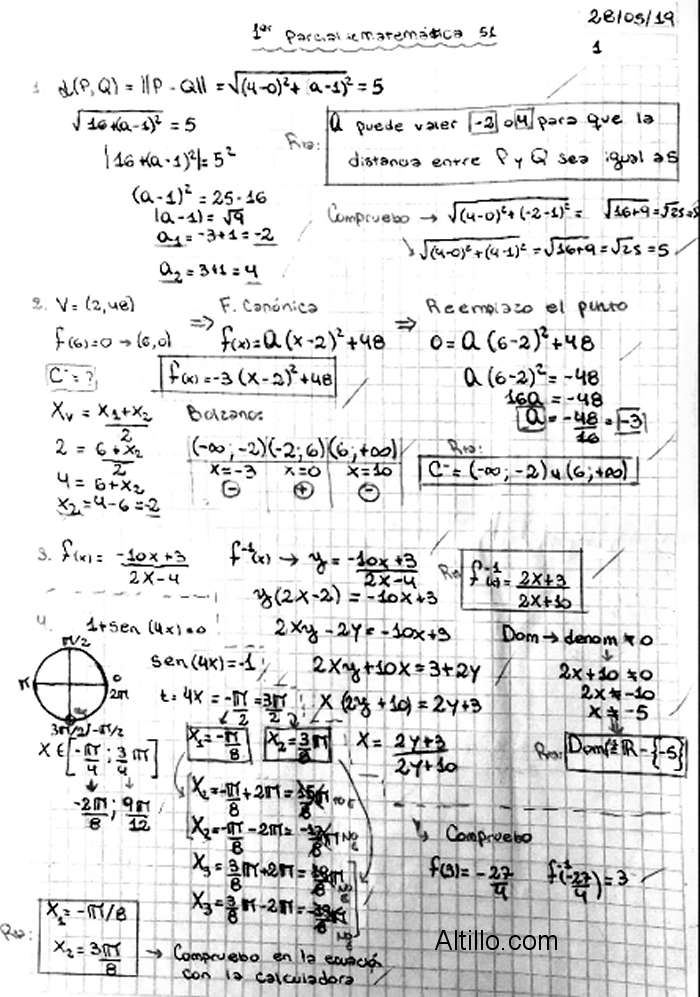 28/05/19
1er Parcial matemática 51
1
1. d(P,Q) = ||P - Q|| = √(4-0)²+(a-1)² = 5
√16+(a-1)² = 5
|16+(a-1)²| = 5²
(a-1)² = 25-16
|a-1| = √9
a₁ = -3+1 = -2
a₂ = 3+1 = 4
Rta:
a puede valer -2 o 4 para que la
distancia entre P y Q sea igual a 5
Compruebo → √(4-0)²+(-2-1)² = √16+9 = √25 = 5
√(4-0)²+(4-1)² = √16+9 = √25 = 5
2. V = (2,48)
f(6)=0 → (6,0)
C⁻ = ?
Xv = x₁+x₂/2
2 = 6+x₂/2
4 = 6+x₂
x₂ = 4-6 = -2
⇒ F. Canónica
f(x) = a(x-2)²+48
f(x) = -3(x-2)²+48
⇒ Reemplazo el punto
0 = a(6-2)²+48
a(6-2)² = -48
16a = -48
a = -48/16 = -3
Bolzano:
(-∞;-2)(-2;6)(6;+∞)
x=-3 x=0 x=10
⊖ ⊕ ⊖
Rta:
C⁻ = (-∞;-2) u (6;+∞)
3. f(x) = -10x+3/2x-4
f⁻¹(x) → y = -10x+3/2x-4
y(2x-2) = -10x+3
2xy-2y = -10x+3
2xy+10x = 3+2y
x(2y+10) = 2y+3
x = 2y+3/2y+10
Rta: f⁻¹(x) = 2x+3/2x+10
Dom → denom ≠ 0
2x+10 ≠ 0
2x ≠ -10
x ≠ -5
Rta: Dom f⁻¹: ℝ - {-5}
Compruebo
f(3) = -27/4 f⁻¹(-27/4) = 3
4. 1+sen(4x)=0
π/2
π
0
2π
3π/2 -π/2
sen(4x) = -1
t = 4x = -π/2 = 3π/2
x₁ = -π/8 x₂ = 3/8 π
x ∈ [-π/4 ; 3/4 π]
-2π/8 ; 9π/12
x₁ = -π/8 + 2π = 15/8 π no ∈
x₂ = -π/8 - 2π = -17/8 π No ∈
x₃ = 3/8 π + 2π = 19/8 π No ∈
x₃ = 3/8 π - 2π = -13/8 π No ∈
Rta:
x₁ = -π/8
x₂ = 3π/8
→ Compruebo en la ecuación
con la calculadora
Altillo.com